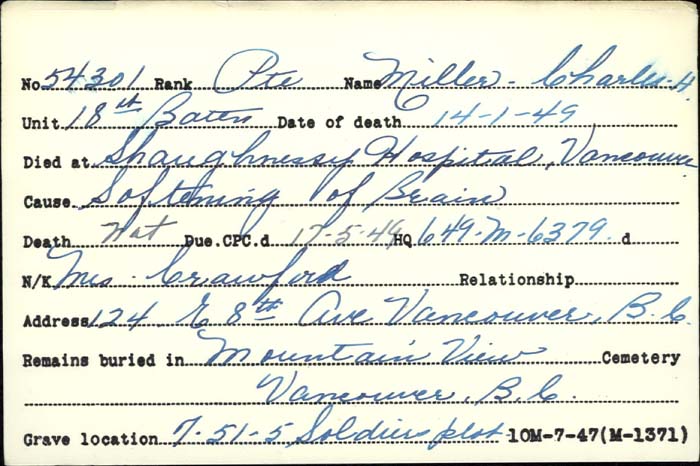 No 54301 Rank Pte Name Miller - Charles H.
Unit 18th Battn Date of death 14-1-49
Died at Shaughnessy Hospital, Vancouver
Cause Softening of Brain
Death Not Due. CPC.d 17-5-49 HQ 649-M-6379. d
N/K Mrs. Crawford Relationship
Address 124 E 8th Ave Vancouver, B.C.
Remains buried in Mountain View Cemetery
Vancouver, B.C.
Grave location 7-51-5 Soldiers plot 10M-7-47(M-1371)